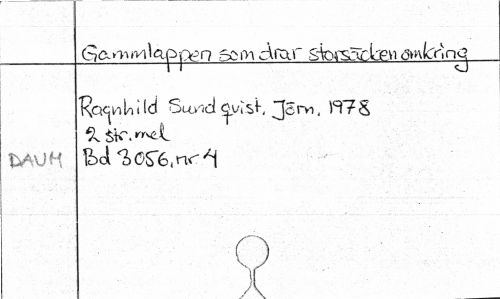 Gammlappen som drar storsäcken omkring
Ragnhild Sundqvist, Jörn, 1978
2 str. mel
DAUM Bd 3056, nr 4